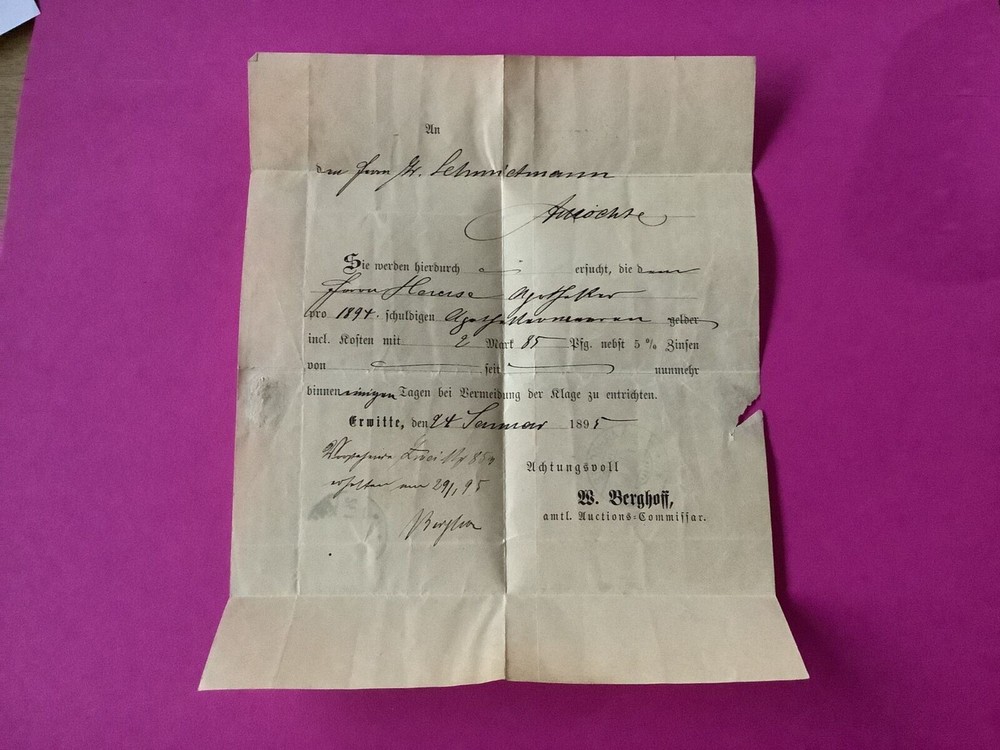 An
den Herrn Schmidtmann
Anröchte
Sie werden hierdurch ersucht, die dem
Herrn Apotheker
pro 1894. schuldigen Apothekerwaaren gelder
incl. Kosten mit 2 Mark 85 Pfg. nebst 5 % Zinsen
von seit nunmehr
binnen einigen Tagen bei Vermeidung der Klage zu entrichten.
Erwitte, den 24 Januar 1895
Achtungsvoll
W. Berghoff,
amtl. Auctions-Commissar.
Vorstehende Zwei Mk 85
erhalten am 29/1 95
Berghoff